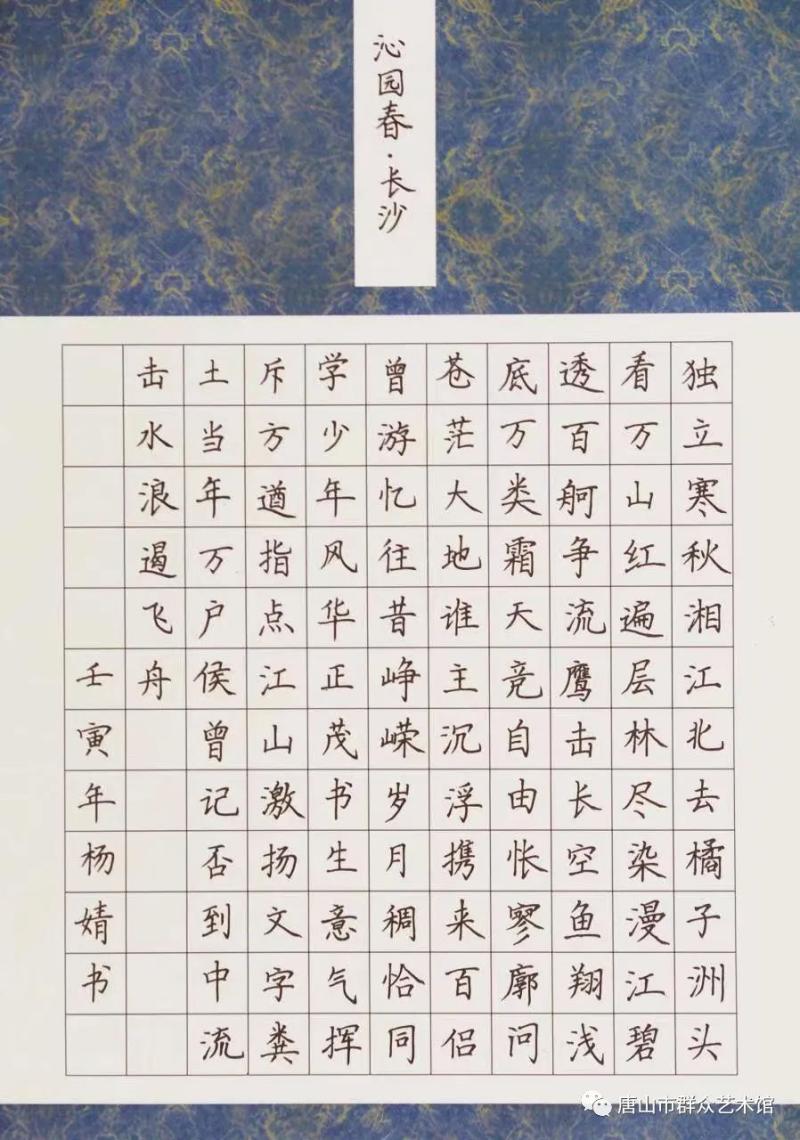 沁园春·长沙
独立寒秋湘江北去橘子洲头
看万山红遍层林尽染漫江碧
透百舸争流鹰击长空鱼翔浅
底万类霜天竞自由怅寥廓问
苍茫大地谁主沉浮携来百侣
曾游忆往昔峥嵘岁月稠恰同
学少年风华正茂书生意气挥
斥方遒指点江山激扬文字粪
土当年万户侯曾记否到中流
击水浪遏飞舟
壬寅年杨婧书
唐山市群众艺术馆